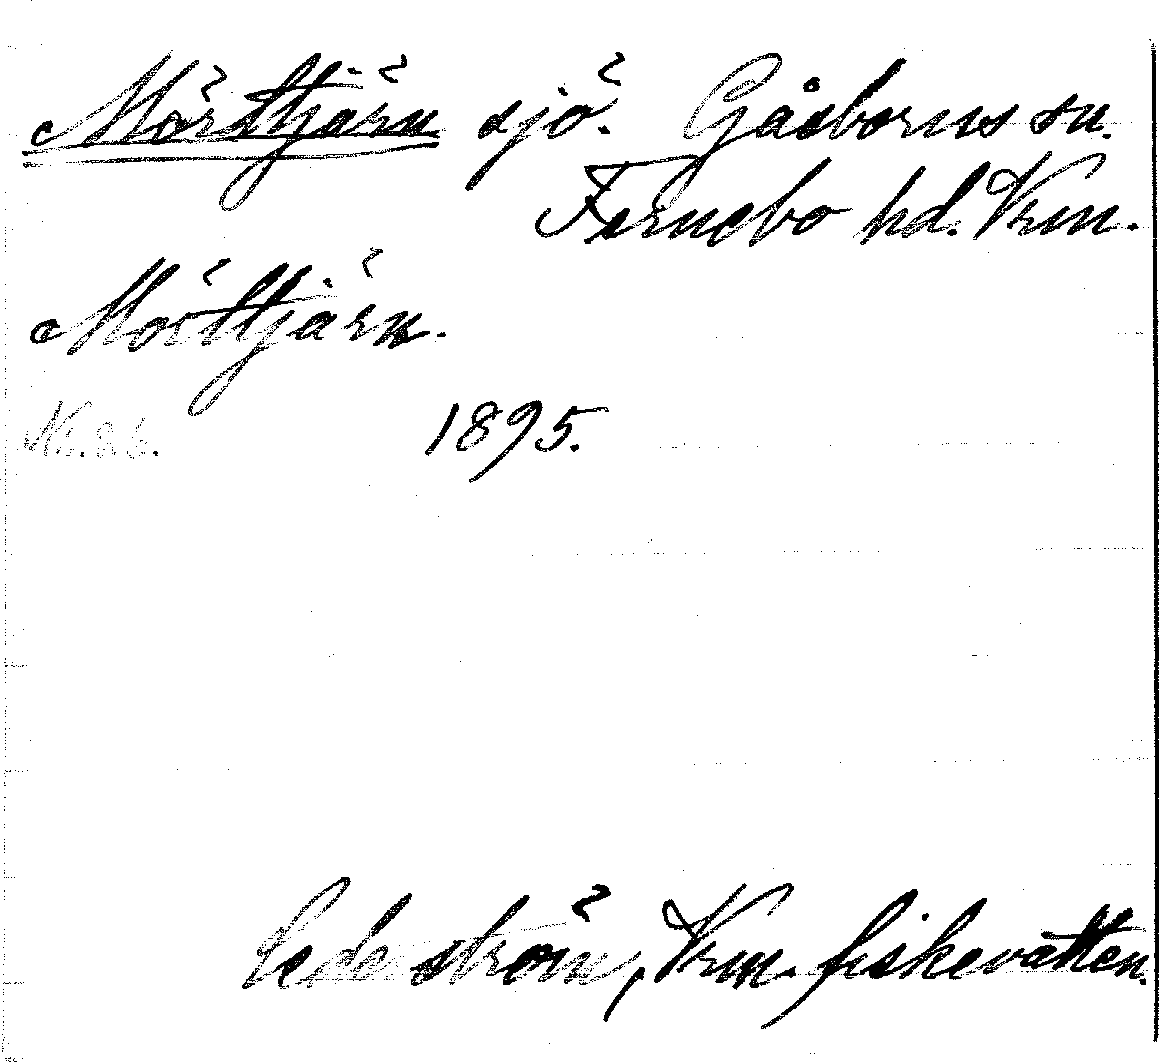 Mörttjärn sjö. Gåsborns sn.
Fernebo hd. Vrm.
Mörttjärn.
1895.
Cederström, Vrm. fiskevatten.